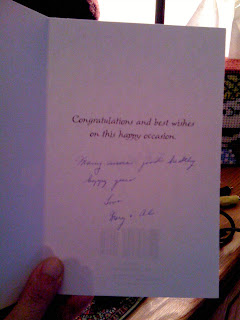 Congratulations and best wishes
on this happy occasion.
Many more
happy years
Love